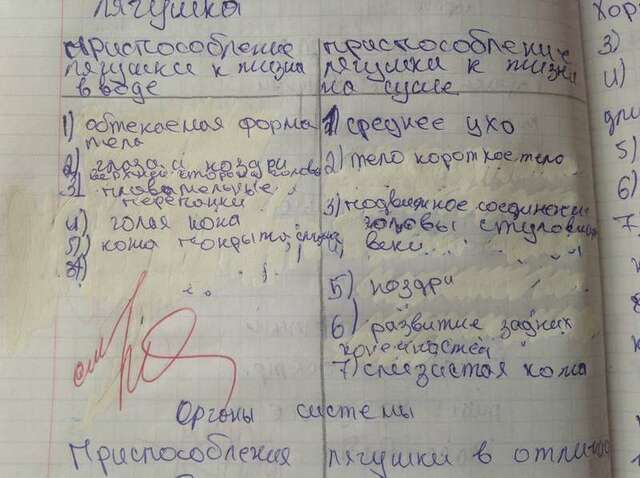 лягушка
Приспособление
лягушки к жизни
в воде
приспособление
лягушки к жизни
на суше
1) обтекаемая форма
тела
2) глаза и ноздри
верхней стороны головы
3) плавательные
перепонки
4) голая кожа
5) кожа покрыта
1) среднее ухо
2) тело короткое тело
3) подвижное соединение
головы
4) веки
5) ноздри
6) развитие задних
конечностей
7) слизистая кожа
Органы системы
Приспособления лягушки в отлич
Хор
3)
4)
дли
5)
6)
7,